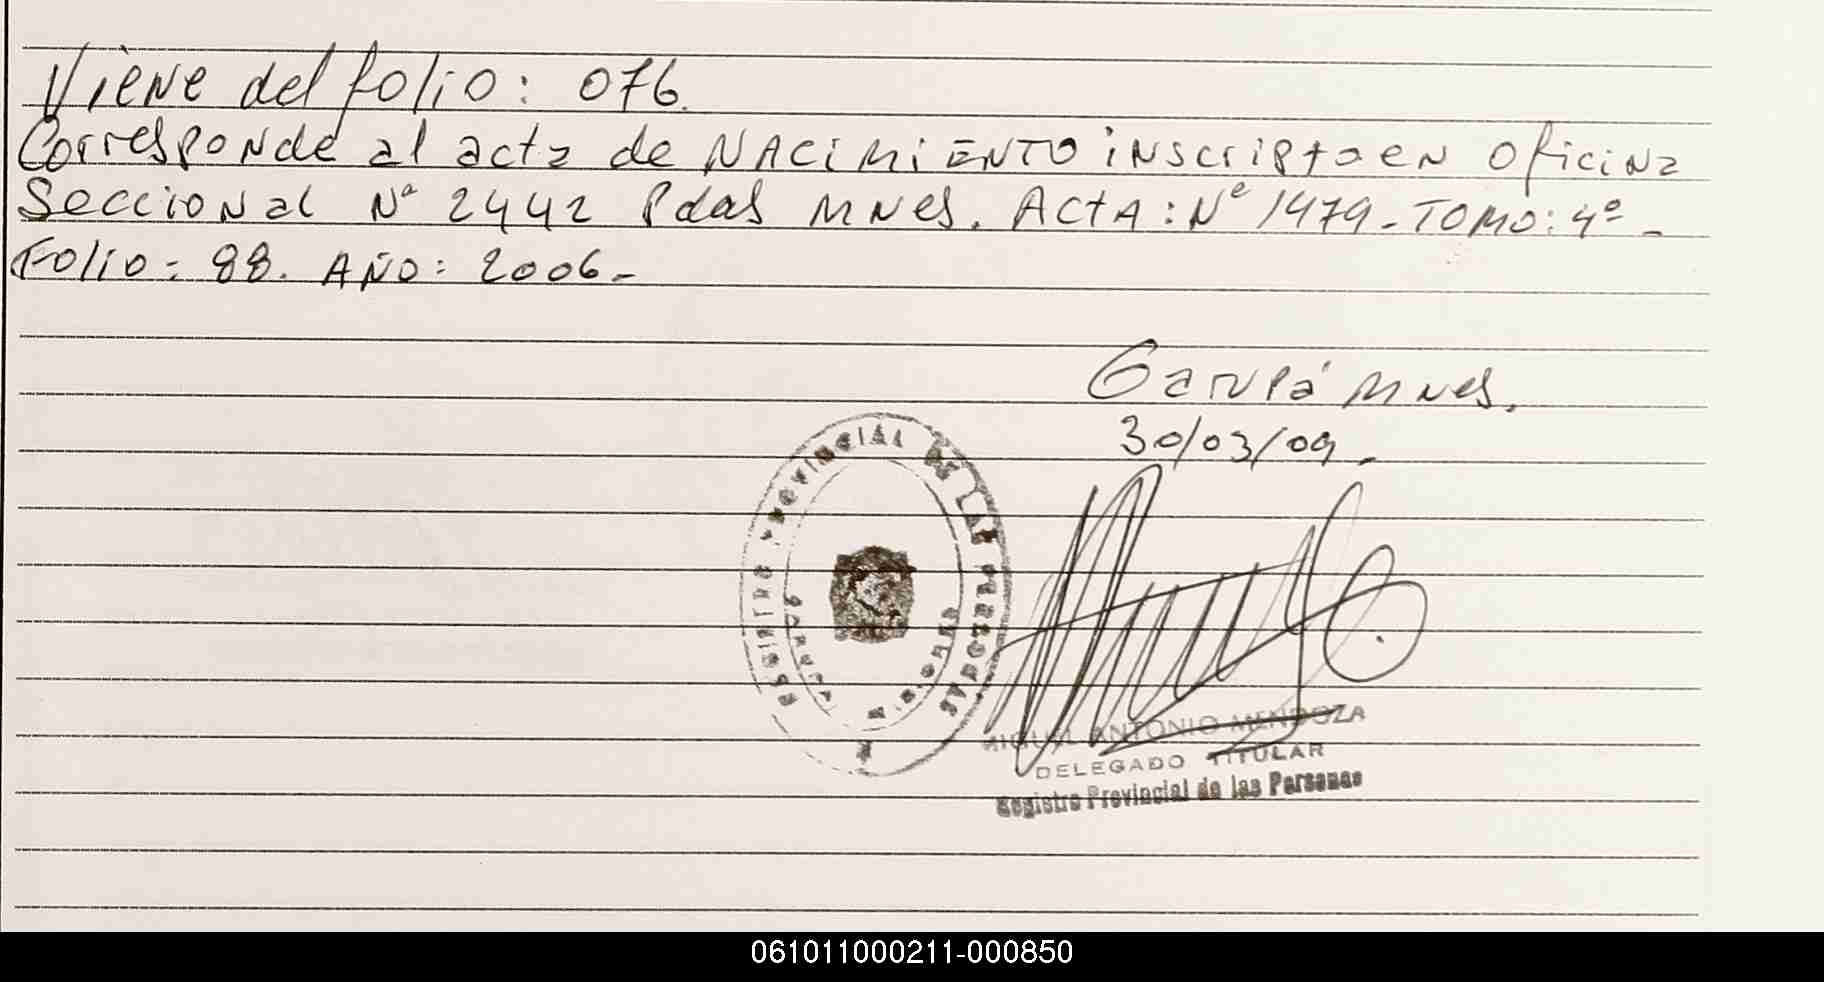 Viene del folio: 076.
Corresponde al acta de NACIMIENTO inscripta en Oficina
Seccional Nº 2442 Pdas Mnes. ACTA: Nº 1479-TOMO: 4º-
Folio: 88. AÑO: 2006-
Garupá Mnes.
30/03/09.-
REGISTRO PROVINCIAL DE LAS PERSONAS
MIGUEL ANTONIO MENDOZA
DELEGADO TITULAR
Registro Provincial de las Personas
061011000211-000850